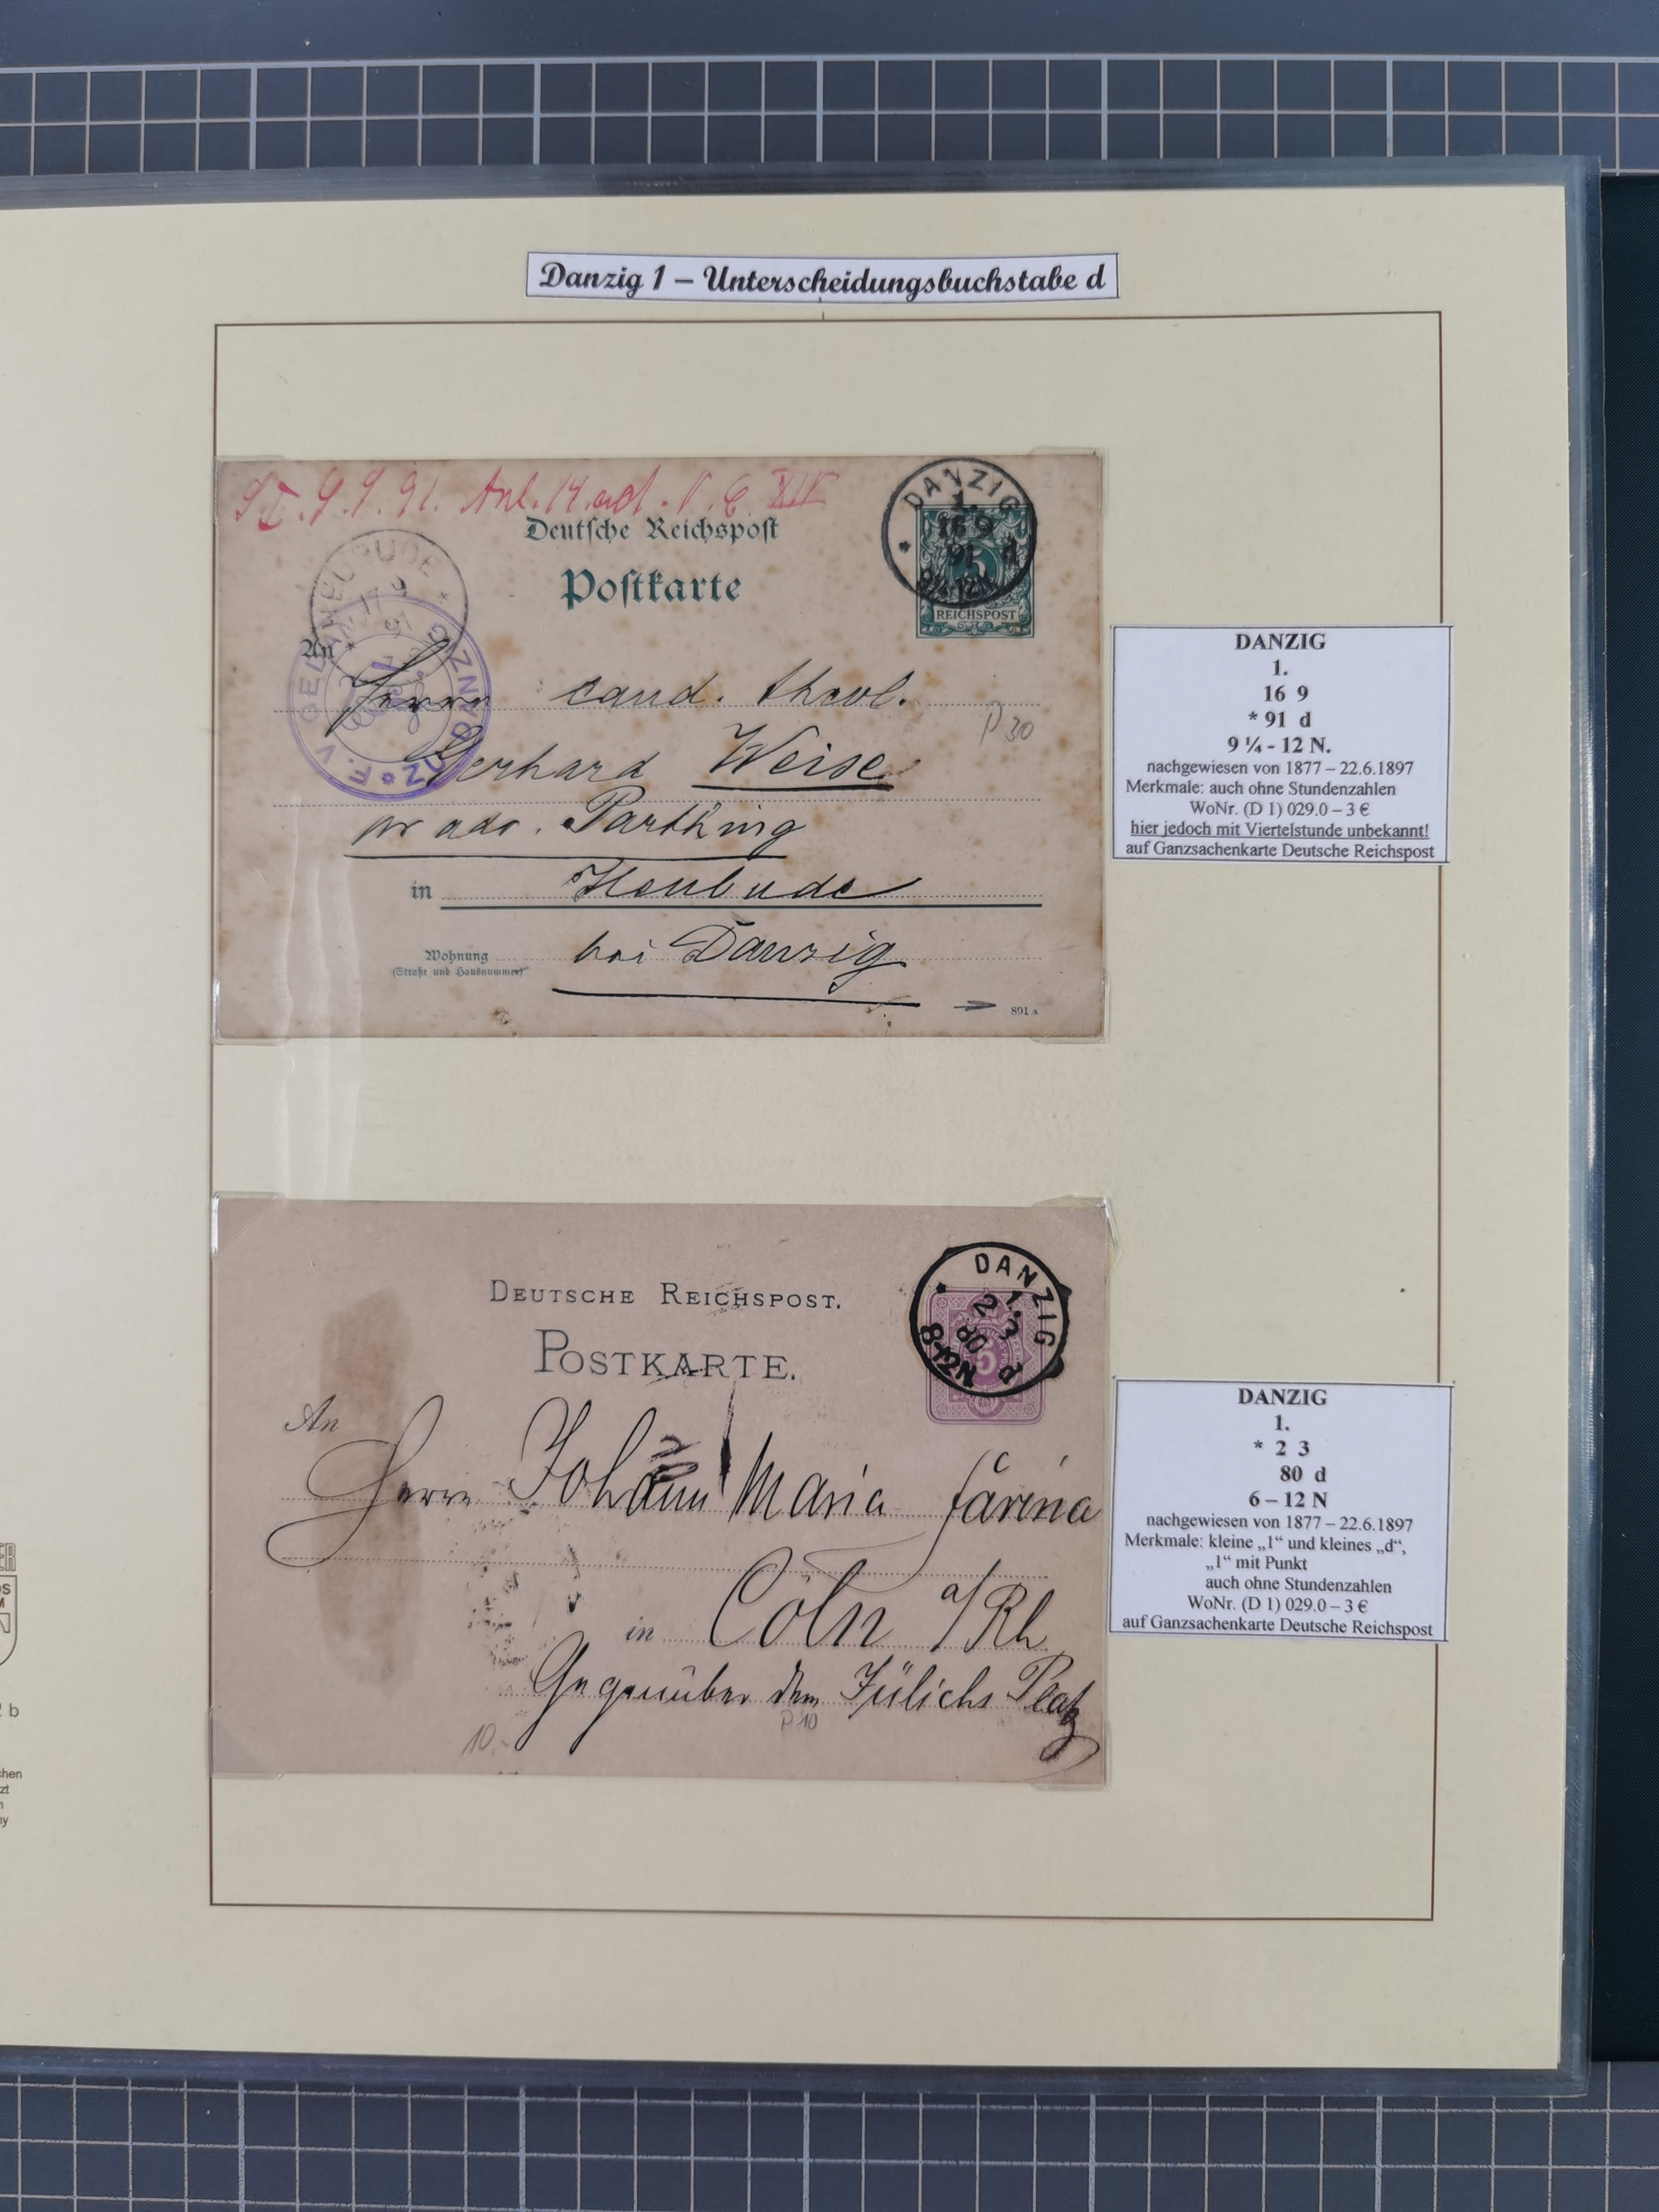 Danzig 1 – Unterscheidungsbuchstabe d
Anl. 14
Deutsche Reichspost
Postkarte
DANZIG
1.
16 9
91 d
9¼-12N
REICHSPOST
17 9
91
DANZIG
An
Herrn cand. theol.
Gerhard Weise
P 30
pr adr. Parthing
in Heubude
Wohnung
(Straße und Hausnummer)
bei Danzig
891 A
DANZIG
1.
16 9
* 91 d
9 ¼ - 12 N.
nachgewiesen von 1877 – 22.6.1897
Merkmale: auch ohne Stundenzahlen
WoNr. (D 1) 029.0 – 3 €
hier jedoch mit Viertelstunde unbekannt!
auf Ganzsachenkarte Deutsche Reichspost
DEUTSCHE REICHSPOST.
POSTKARTE.
DANZIG
1.
2 3
80 d
8-12N
5
An
Herrn Johann Maria Farina
in Cöln a/Rh
Gegenüber dem Jülichs Platz
P 10
10.-
DANZIG
1.
* 2 3
80 d
6 – 12 N
nachgewiesen von 1877 – 22.6.1897
Merkmale: kleine „1“ und kleines „d“,
„1“ mit Punkt
auch ohne Stundenzahlen
WoNr. (D 1) 029.0 – 3 €
auf Ganzsachenkarte Deutsche Reichspost